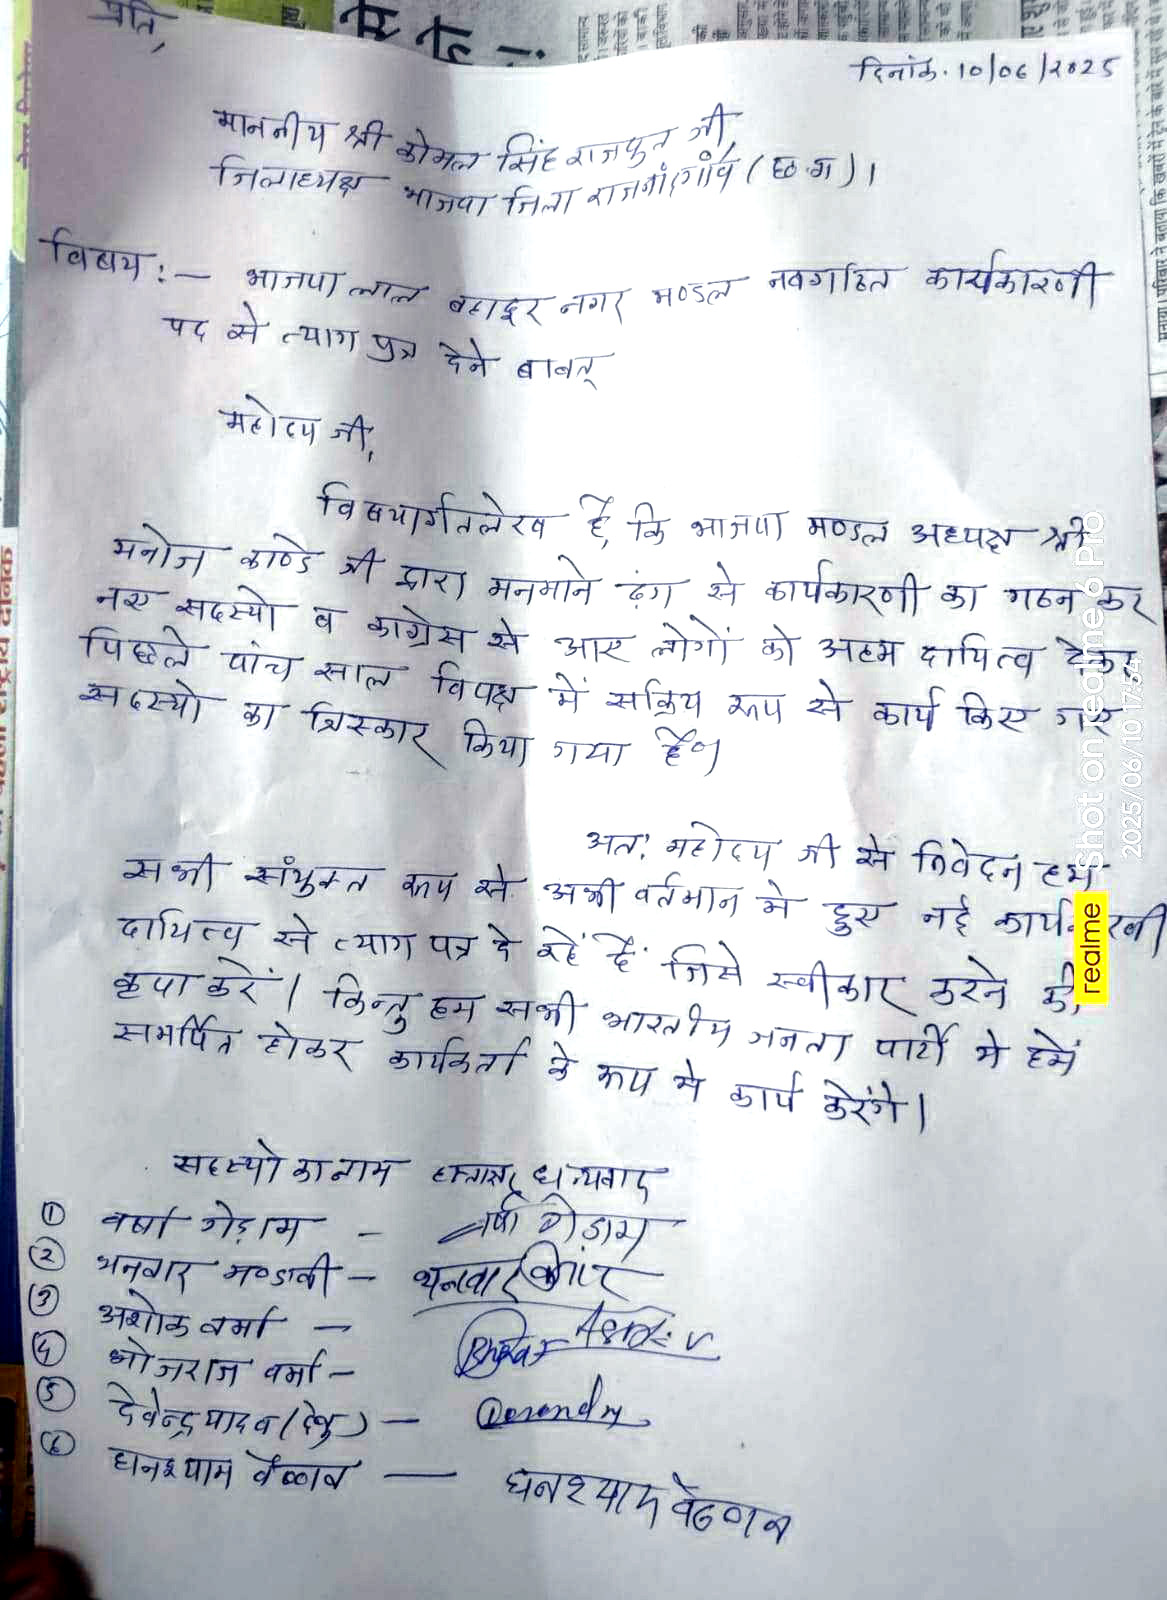 प्रति,
दिनांक. 10/06/2025
माननीय श्री कोमल सिंह राजपुत जी,
जिलाध्यक्ष भाजपा जिला राजनांदगांव (छ.ग)।
विषय :— भाजपा लाल बहादुर नगर मण्डल नवगठित कार्यकारणी
पद से त्याग पत्र देने बाबत्
महोदय जी,
विषयार्गतलेख है, कि भाजपा मण्डल अध्यक्ष श्री
मनोज काण्डे जी द्वारा मनमाने ढंग से कार्यकारणी का गठन कर
नए सदस्यो व कांग्रेस से आए लोगों को अहम दायित्व देकर,
पिछले पांच साल विपक्ष में सक्रिय रूप से कार्य किए गए
सदस्यो का त्रिस्कार किया गया है।
अत: महोदय जी से निवेदन हम
सभी संयुक्त रूप से अभी वर्तमान मे हुए नई कार्यकारणी
दायित्व से त्याग पत्र दे रहें हैं जिसे स्वीकार करने की
कृपा करें। किन्तु हम सभी भारतीय जनता पार्टी मे हमें
समर्पित होकर कार्यकर्ता के रूप मे कार्य करेंगे।
सदस्यो का नाम हस्ताक्षर धन्यवाद
① वर्षा गेड़ाम — वर्षा गेडाम
② भनवार मण्डावी — भनवार
③ अशोक वर्मा — Ashok v
④ भोजराज वर्मा —
⑤ देवेन्द्र यादव (देवु) — Devendra
⑥ घनश्याम वैष्णव — घनश्याम वैष्णव
Shot on realme 6 Pro
2025/06/10 17:54
realme